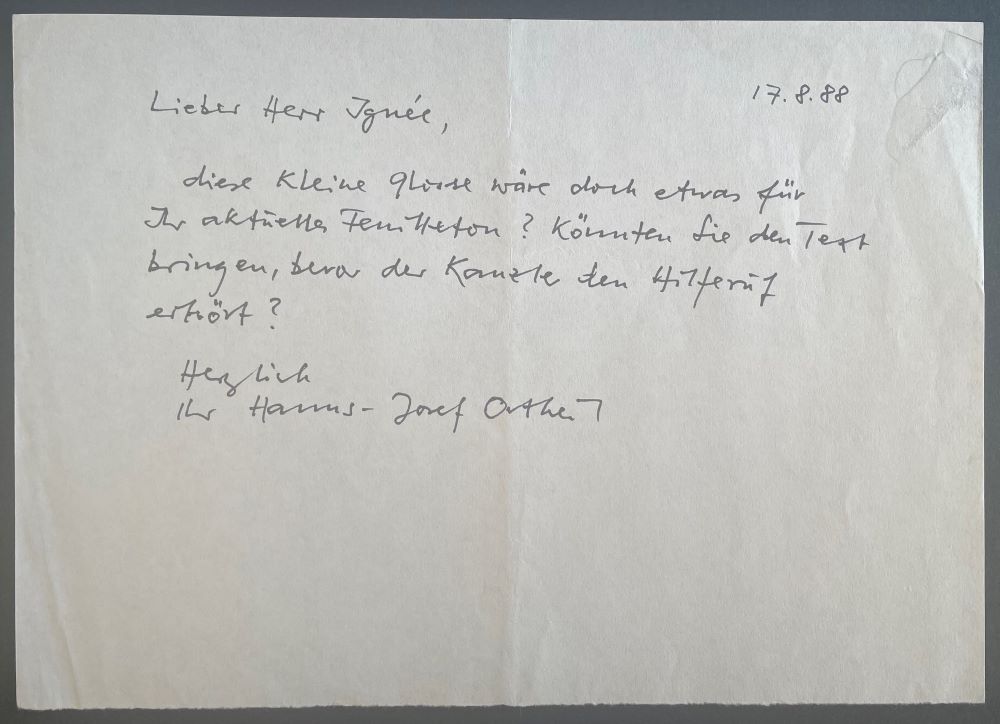 17.8.88
Lieber Herr Ignée,
diese kleine Glosse wäre doch etwas für
Ihr aktuelles Feuilleton? Könnten Sie den Text
bringen, bevor der Kanzler den Hilferuf
erhört?
Herzlich
Ihr Hanns-Josef Ortheil